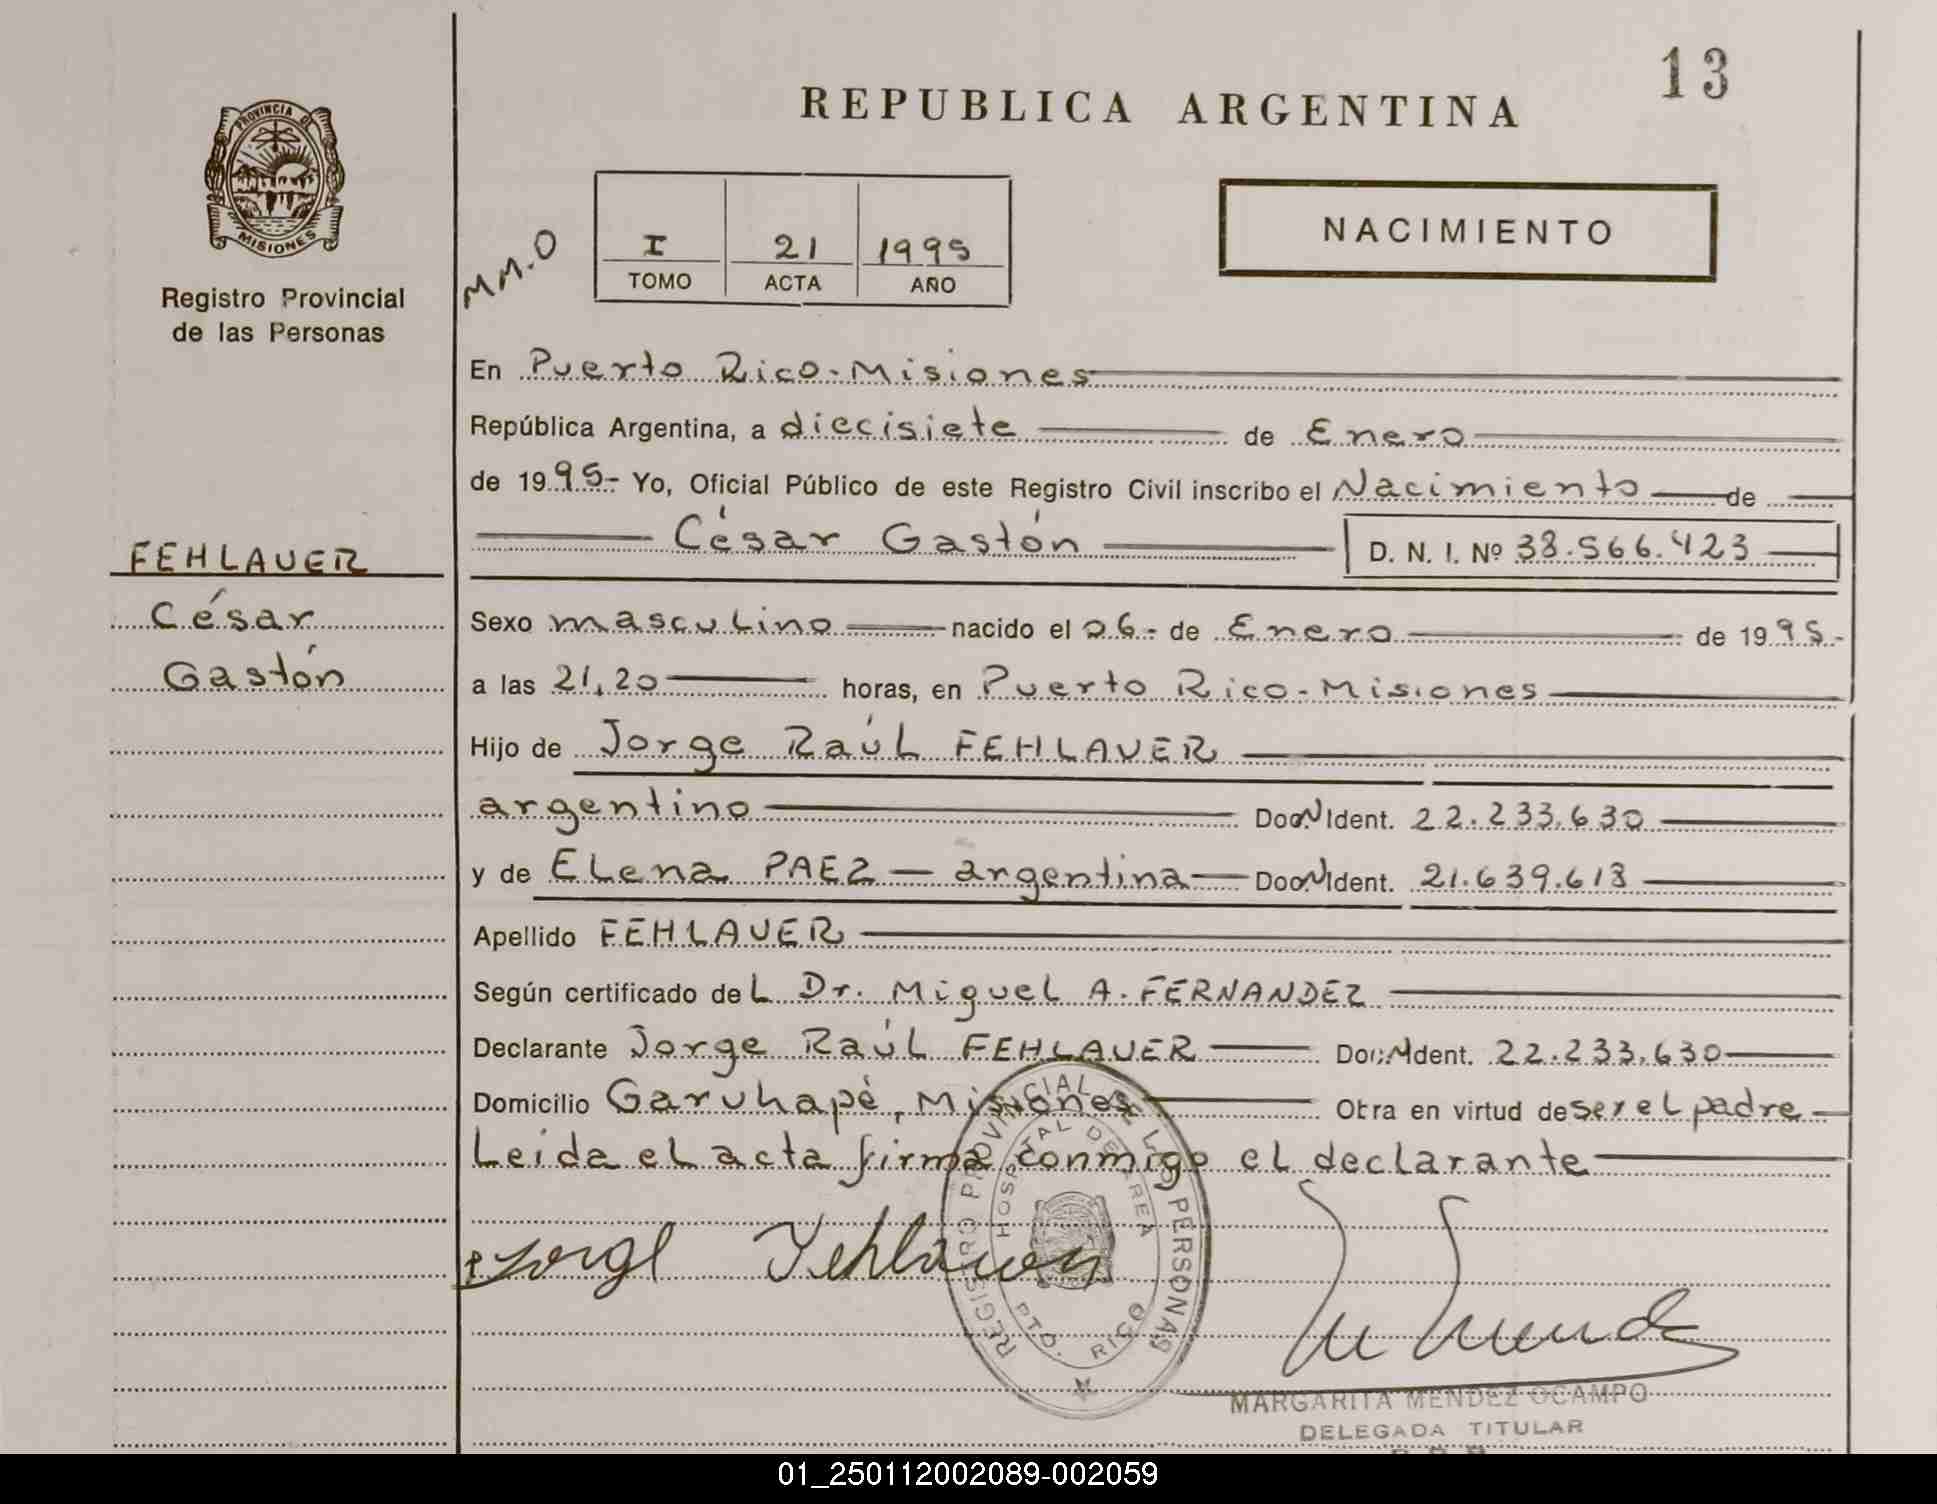 13
REPUBLICA ARGENTINA
PROVINCIA DE
MISIONES
Registro Provincial
de las Personas
M M.O
I 21 1995
TOMO ACTA AÑO
NACIMIENTO
En Puerto Rico-Misiones
República Argentina, a diecisiete de Enero
de 1995- Yo, Oficial Público de este Registro Civil inscribo el Nacimiento de
César Gastón D. N. I. Nº 38.566.423
FEHLAUER
César
Gastón
Sexo masculino nacido el 06- de Enero de 1995-
a las 21,20 horas, en Puerto Rico-Misiones
Hijo de Jorge Raúl FEHLAUER
argentino Doc. N Ident. 22.233.630
y de Elena PAEZ - argentina - Doc. N Ident. 21.639.613
Apellido FEHLAUER
Según certificado del Dr. Miguel A. FERNANDEZ
Declarante Jorge Raúl FEHLAUER Doc. N Ident. 22.233.630
Domicilio Garuhapé, Misiones Obra en virtud de ser el padre
Leida el acta firma conmigo el declarante
Jorge Fehlauer
REGISTRO PROVINCIAL DE LAS PERSONAS
HOSPITAL DE AREA
PTO. RICO
MARGARITA MENDEZ OCAMPO
DELEGADA TITULAR
01_250112002089-002059